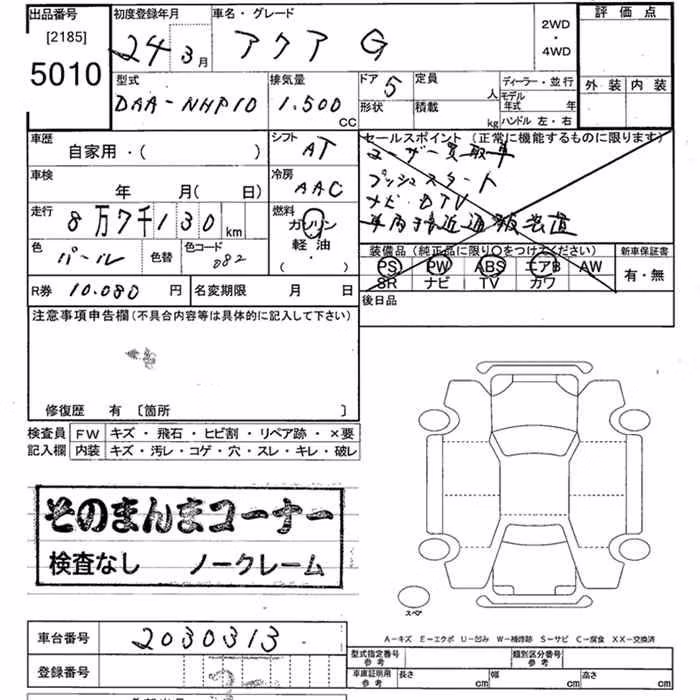 出品番号 初度登録年月 車名・グレード 2WD ・ 4WD 評価点
[2185]
5010 24 3月 アクア G
外装 内装
型式 排気量 ドア 5 定員 人 ディーラー・並行
モデル年式 年
DAA-NHP10 1.500 CC 形状 積載 kg ハンドル 左・右
車歴 シフト セールスポイント (正常に機能するものに限ります)
自家用・( ) AT ユーザー買取車
車検 冷房 プッシュスタート
年 月( 日) AAC ナビ・DTV
走行 燃料 車両接近通報装置
8万7千130 km ガソリン
色 色替 色コード 軽油 装備品 (純正品に限り○をつけてください) 新車保証書
パール 082 ・ ( ) PS PW ABS エアB AW 有・無
SR ナビ TV カワ
R券 10.080 円 名変期限 月 日 後日品
注意事項申告欄 (不具合内容等は具体的に記入して下さい)
修復歴 有 [箇所 ]
検査員 FW キズ・飛石・ヒビ割・リペア跡・×要
記入欄 内装 キズ・汚レ・コゲ・穴・スレ・キレ・破レ
そのまんまコーナー
検査なし ノークレーム
スペア
A-キズ E-エクボ U-凹み W-補修跡 S-サビ C-腐食 XX-交換済
車台番号 2030313
型式指定番号 参考 類別区分番号 参考
登録番号 車庫証明用 参考 長さ cm 幅 cm 高さ cm